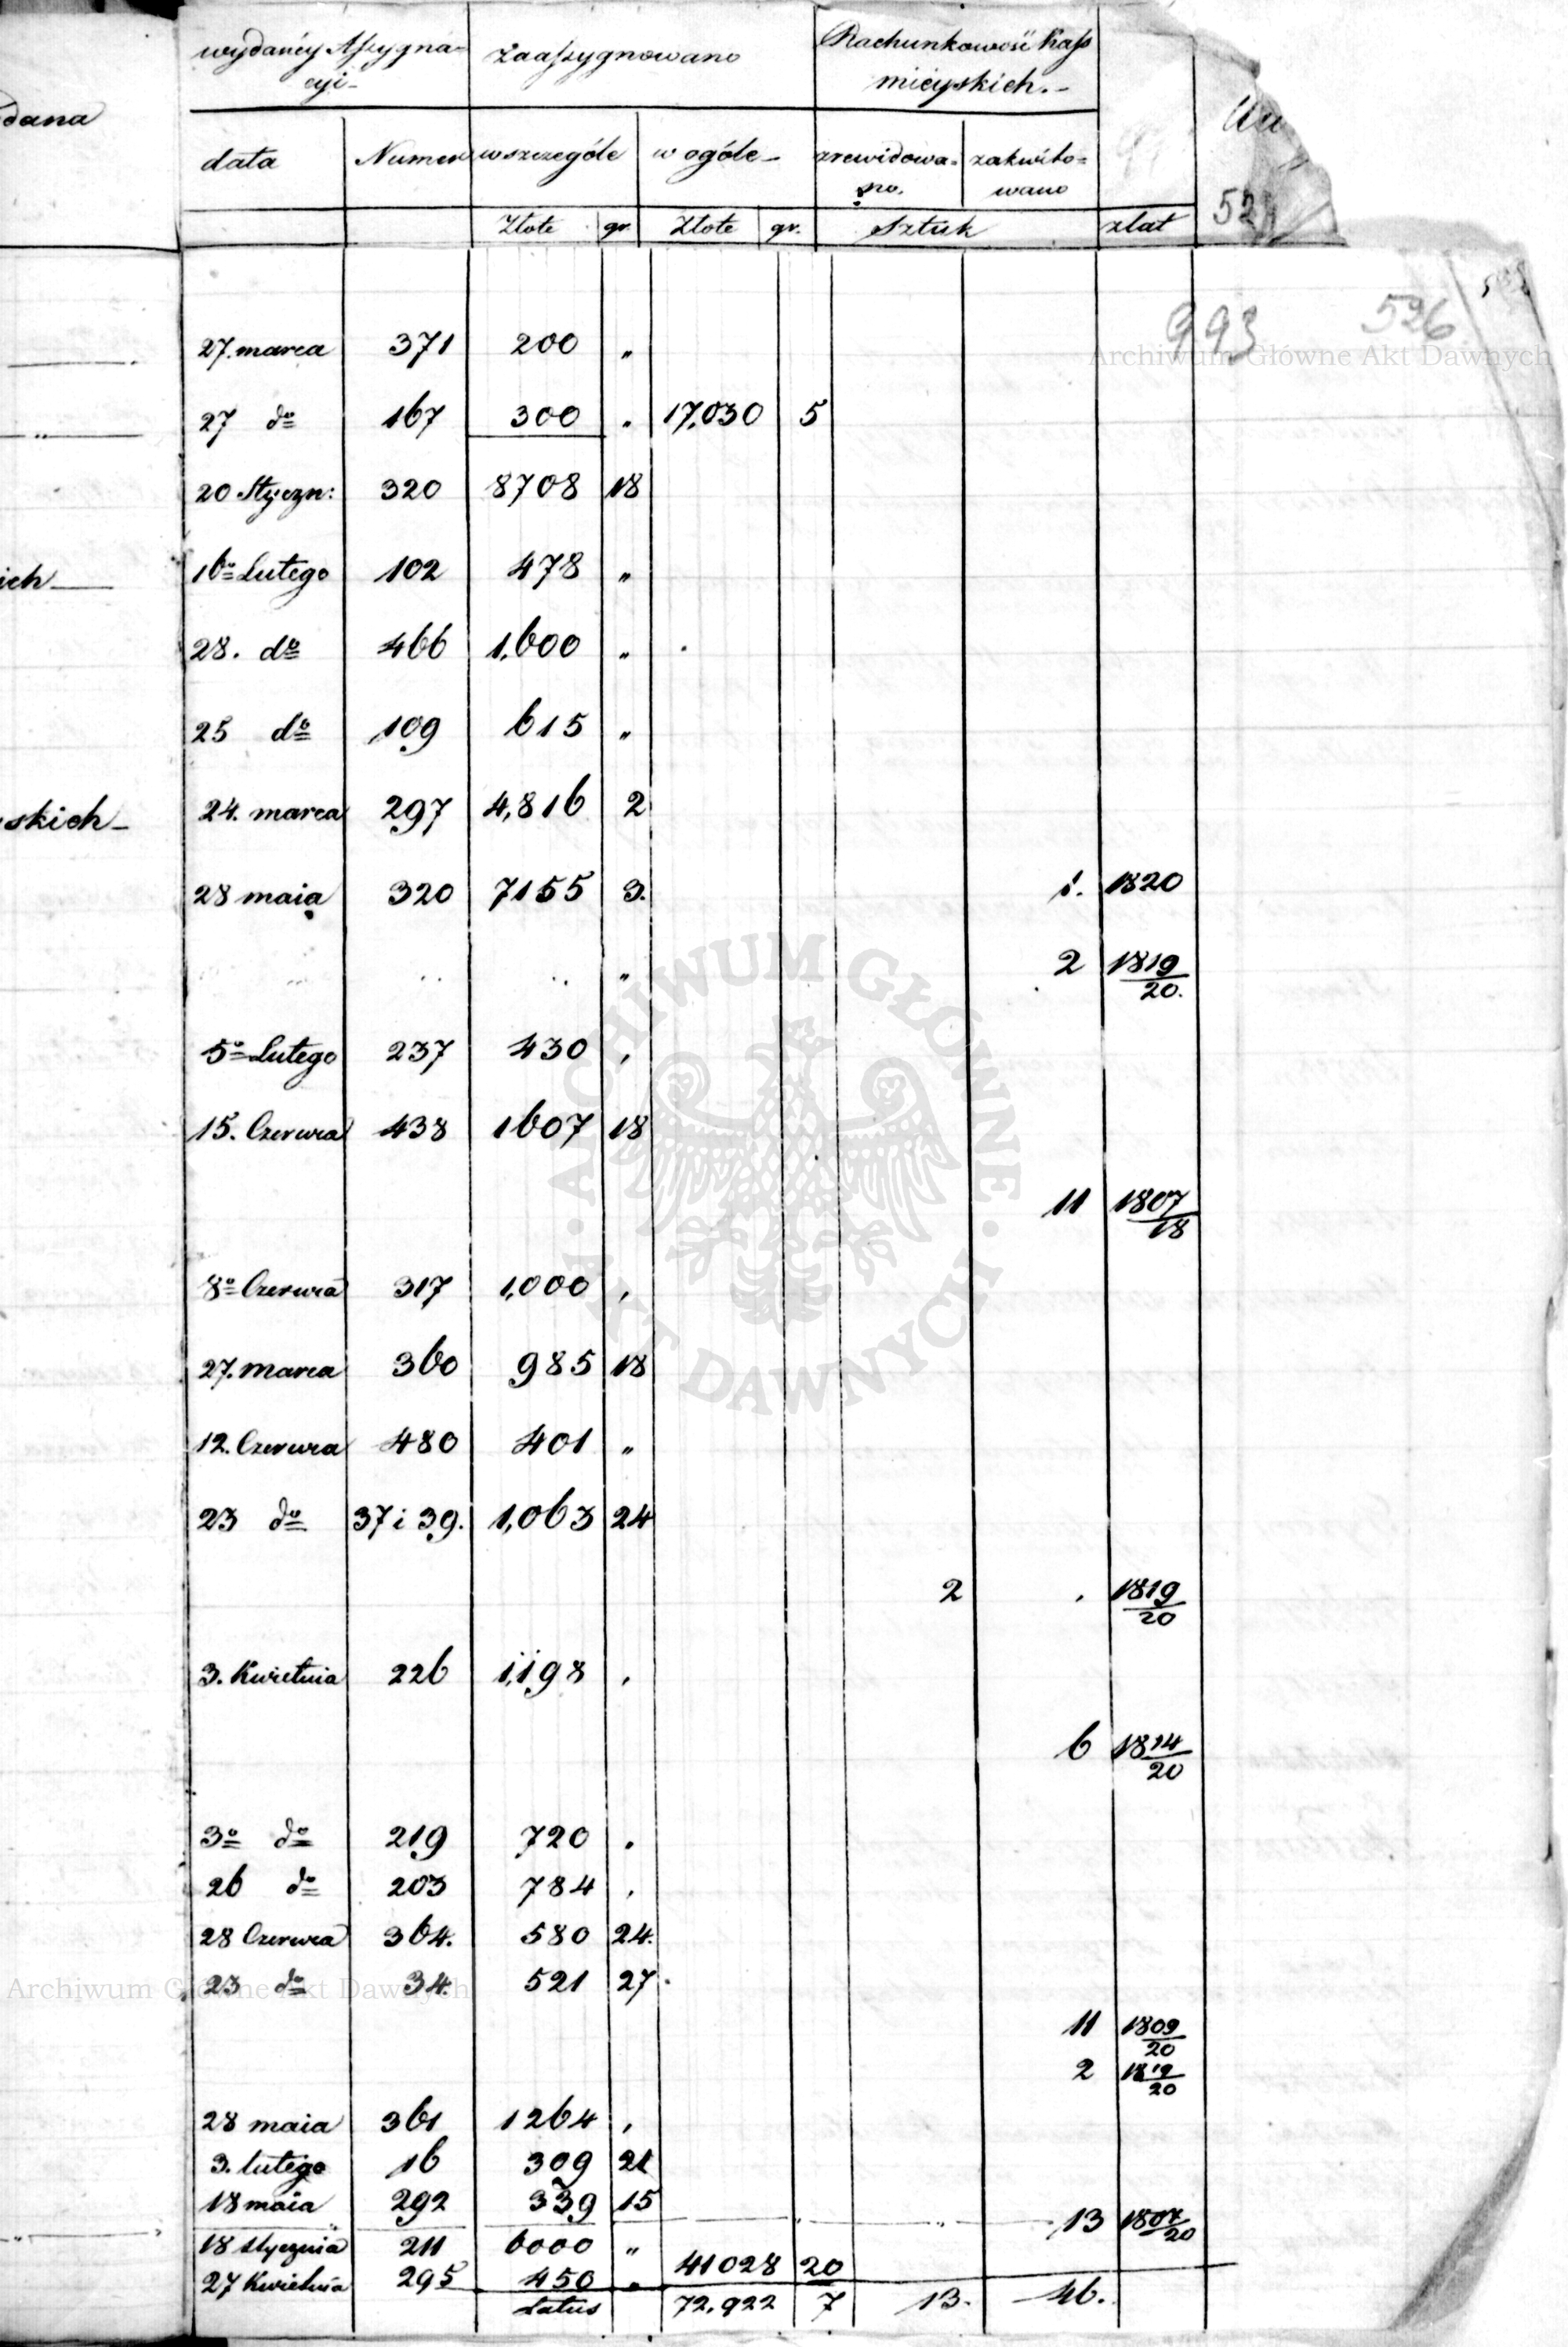 wydanéy Assygna= Zaassygnowano Rachunkowość Kass
cyi- mieyskich.-
dana
data Numer w szczególe w ogóle- zrewidowa= zakwito=
no. wano
Złote gr. Złote gr. Sztuk zlat 529
993 526
Archiwum Główne Akt Dawnych
27. marca 371 200 "
27 do 167 300 " 17,030 5
20 Styczn: 320 8708 18
ich 16o Lutego 102 478 "
28. do 466 1,600 "
25 do 109 615 "
skich- 24. marca 297 4,816 2
28 maia 320 7155 3. 1. 1820
" 2 1819/20.
5o Lutego 237 430 ,
15. Czerwca 438 1607 18
11 1807/18
8o Czerwca 317 1,000 ,
27. marca 360 985 18
12. Czerwca 480 401 "
23 do 37 i 39. 1,063 24
2 . 1819/20
3. Kwietnia 226 1,198 ,
6 1814/20
3o do 219 720 .
26 do 203 784 ,
28 Czerwca 364. 580 24.
23 do 34. 521 27.
Archiwum Główne Akt Dawnych
11 1809/20
2 1819/20
28 maia 361 1264 ,
3. lutego 16 309 21
18 maia 292 339 15 " " 13 1807/20
18 stycznia 211 6000 "
27 Kwietnia 295 450 " 41028 20
Latus 72,922 7 13. 46.
ARCHIWUM GŁÓWNE · AKT DAWNYCH ·